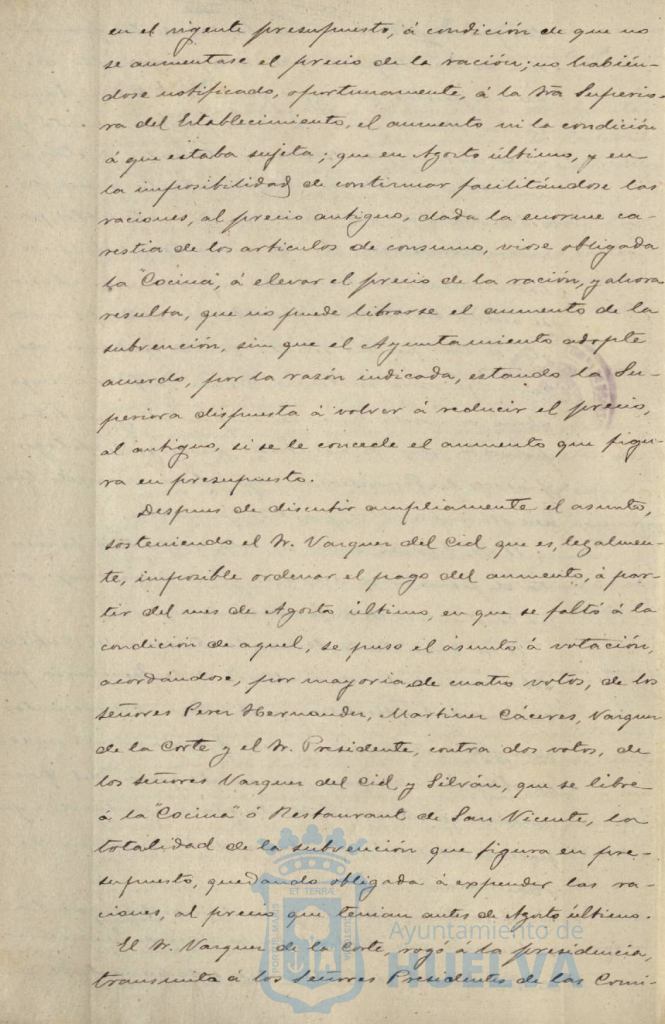 en el vigente presupuesto, á condición de que no
se aumentase el precio de la ración; no habién-
dose notificado, oportunamente, á la Sra Superio-
ra del Establecimiento, el aumento ni la condición
á que estaba sujeta; que en Agosto último, y en
la imposibilidad de continuar facilitándose las
raciones, al precio antiguo, dada la enorme ca-
restia de los articulos de consumo, viose obligada
la "Cocina", á elevar el precio de la ración, y ahora
resulta, que no puede librarse el aumento de la
subvención, sin que el Ayuntamiento adopte
acuerdo, por la razón indicada, estando la Su-
periora dispuesta á volver á reducir el precio,
al antiguo, si se le concede el aumento que figu-
ra en presupuesto.
Despues de discutir ampliamente el asunto,
sosteniendo el Sr. Vazquez del Cid que es, legalmen-
te, imposible ordenar el pago del aumento, á par-
tir del mes de Agosto último, en que se faltó á la
condición de aquel, se puso el asunto á votación,
acordándose, por mayoria de cuatro votos, de los
señores Perez Hernandez, Martinez Cáceres, Vazquez
de la Corte y el Sr. Presidente, contra dos votos, de
los señores Vazquez del Cid y Silván, que se libre
á la "Cocina" ó Restaurant de San Vicente, la
totalidad de la subvención que figura en pre-
supuesto, quedando obligada á expender las ra-
ciones, al precio que tenian antes de Agosto último.
El Sr. Vazquez de la Corte, rogó á la presidencia,
transmita á los Señores Presidentes de las Comi-
Ayuntamiento de
HUELVA